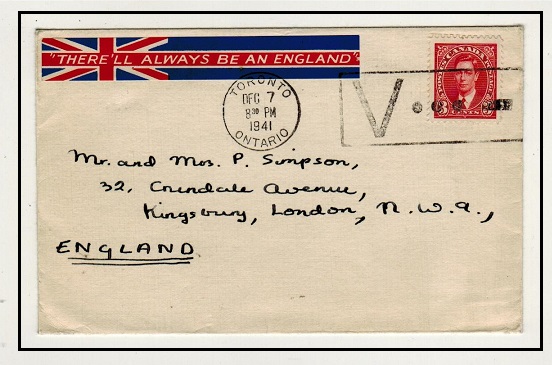 "THERE'LL ALWAYS BE AN ENGLAND"
TORONTO
DEC 7
8 30 PM
1941
ONTARIO
V...-
POSTES CANADA POSTAGE
3 CENTS 3
Mr. and Mrs. P. Simpson,
32, Crundale Avenue,
Kingsbury, London, N.W.9.,
ENGLAND